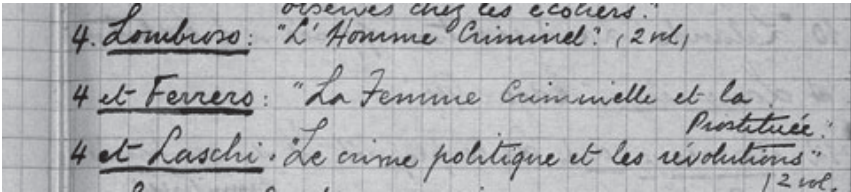 observés chez les écoliers."
4. Lombroso: "L'Homme Criminel". (2 vol)
4 et Ferrero: "La Femme Criminelle et la
Prostituée."
4 et Laschi. "Le crime politique et les révolutions"
(2 vol.